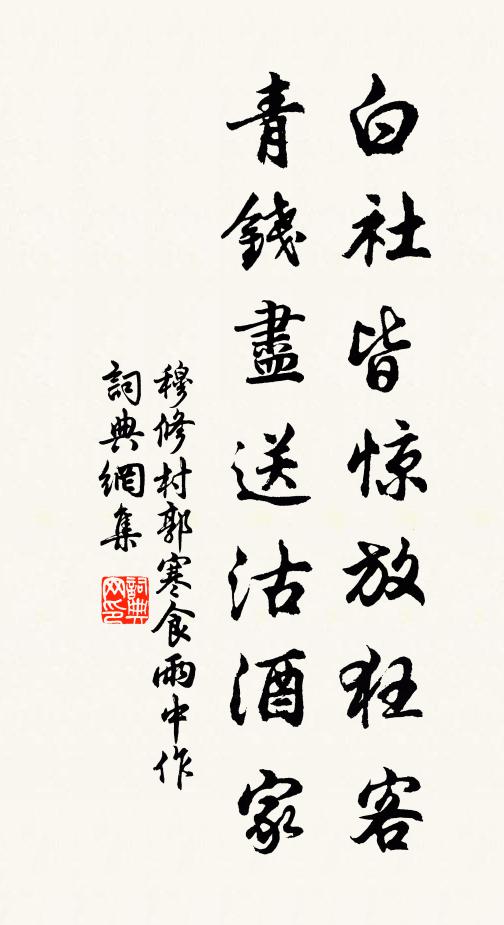 白社皆惊放狂客
青錢盡送沽酒家
穆修村郭寒食雨中作
詞典網集
詞典
网印